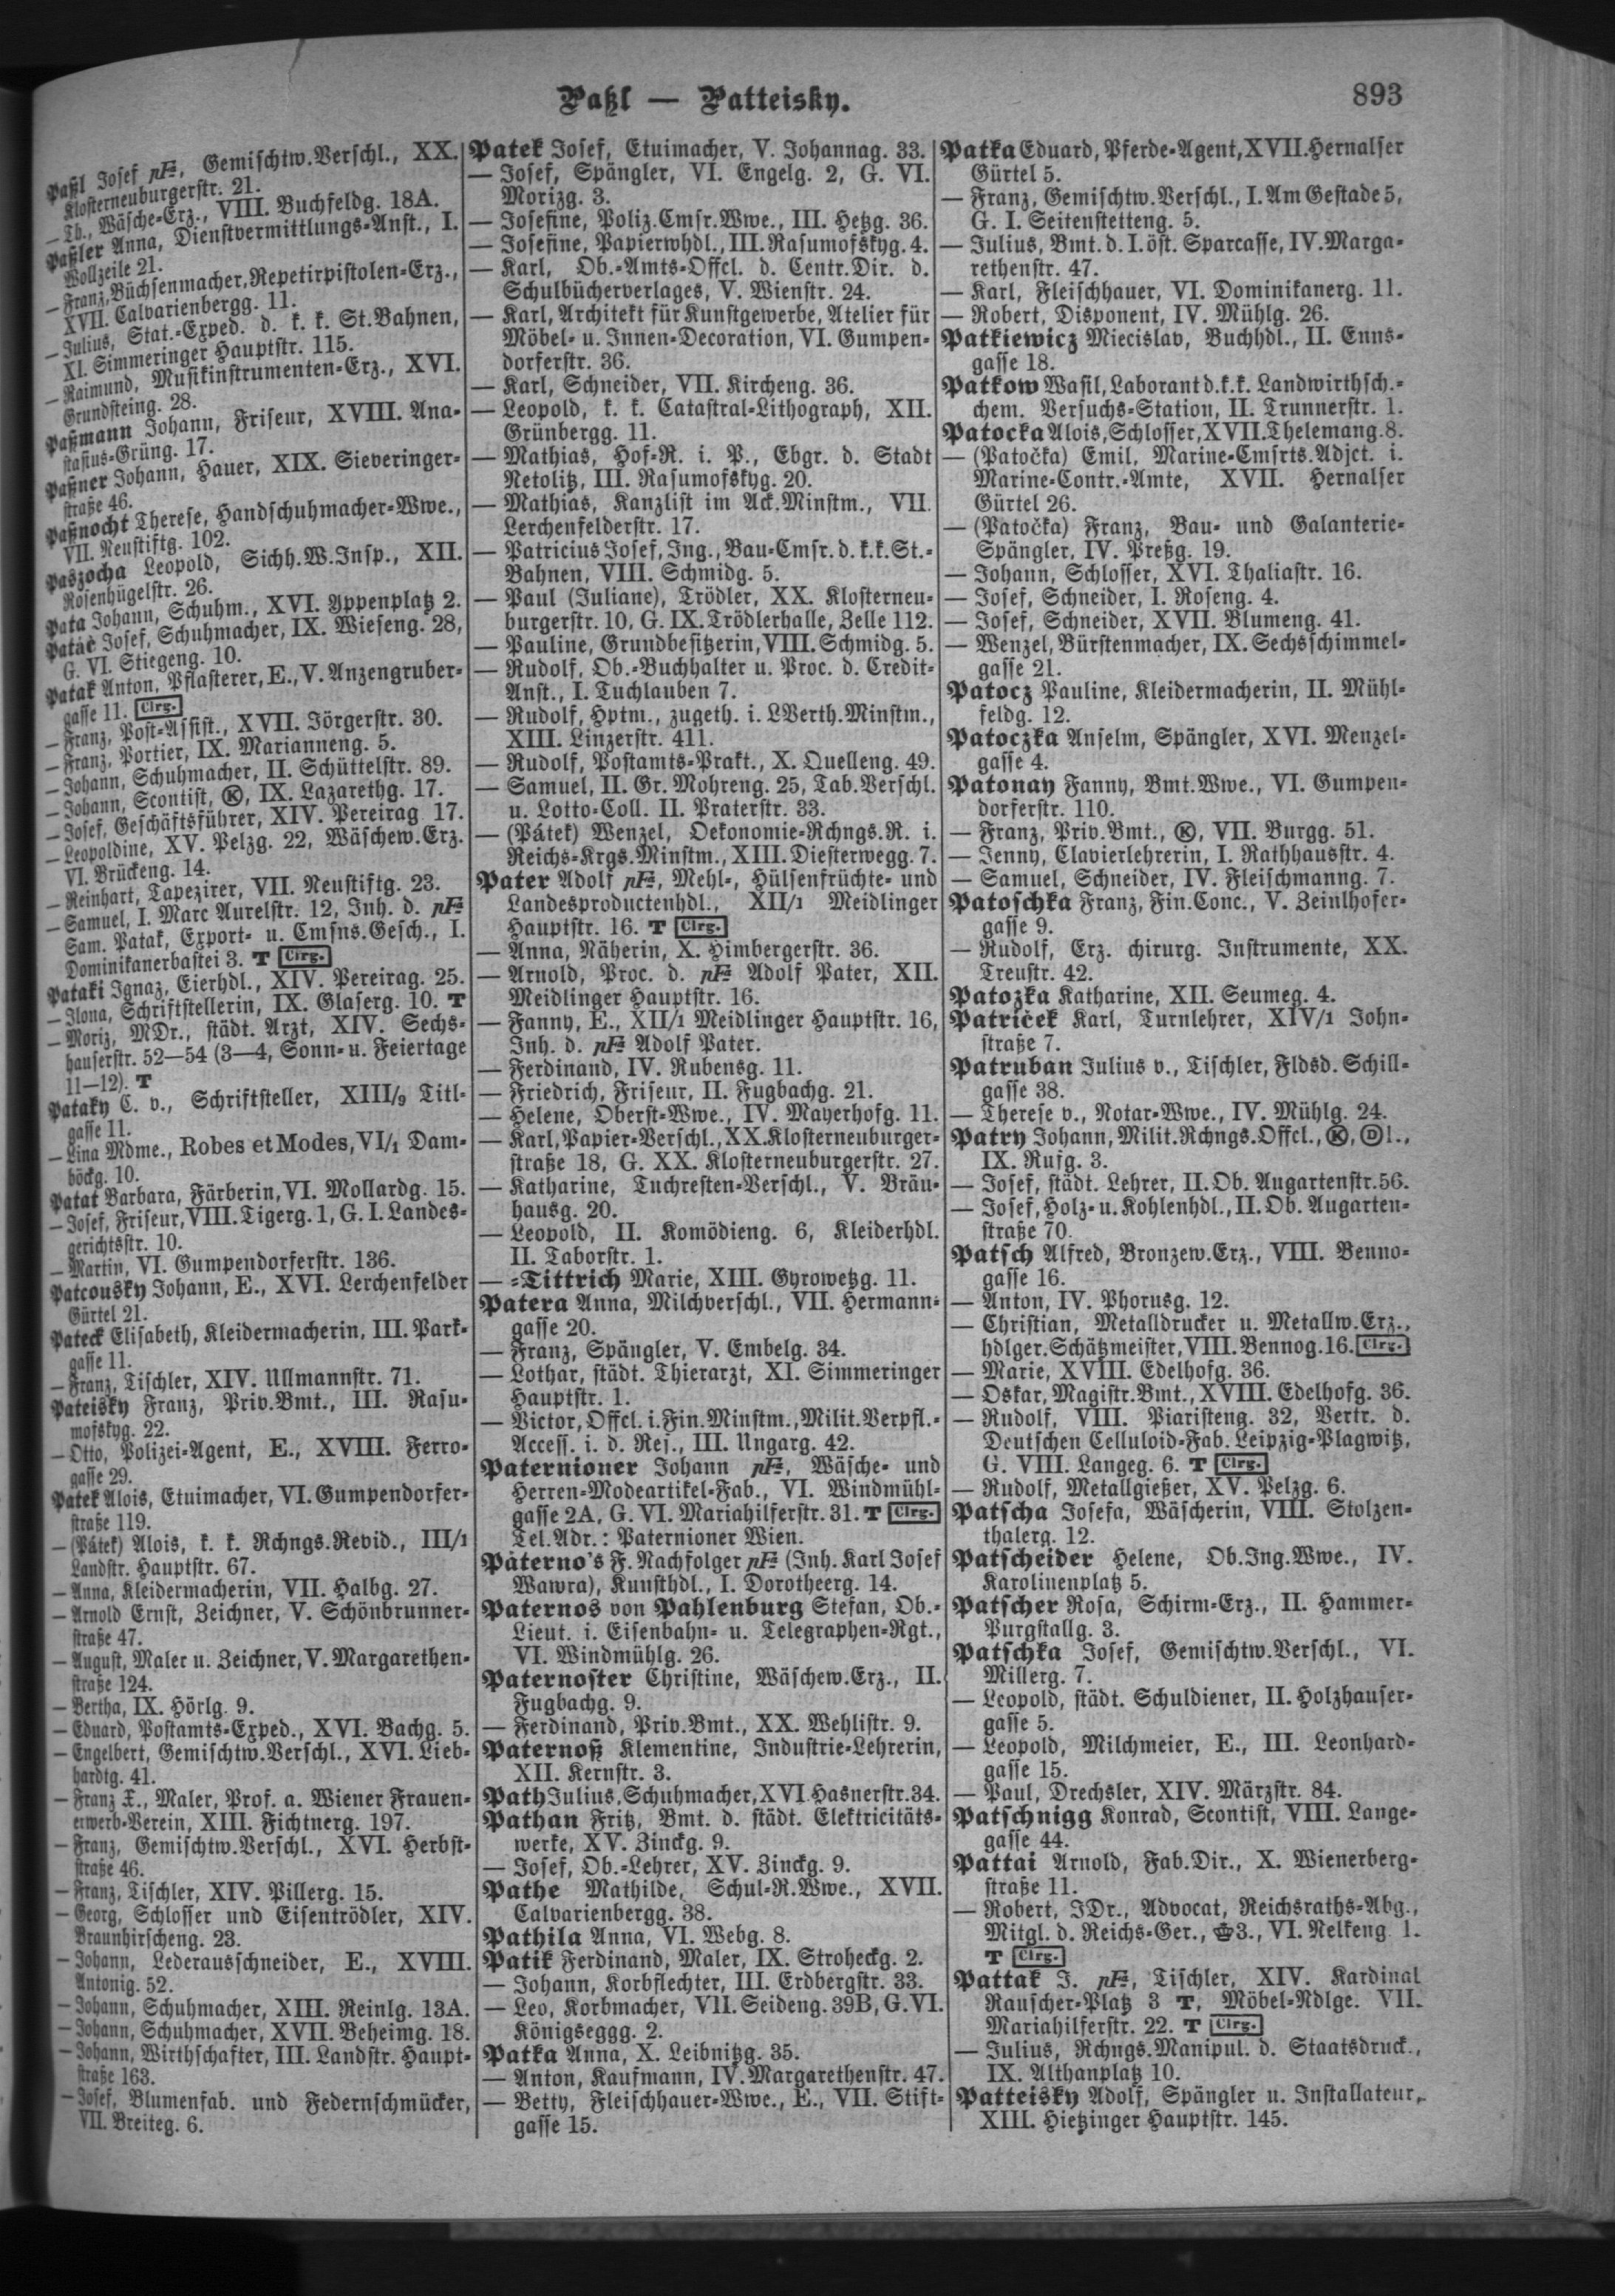 Paßl — Patteisky.
893
Paßl Josef pF=, Gemischtw.Verschl., XX.
Klosterneuburgerstr. 21.
— Th., Wäsche-Erz., VIII. Buchfeldg. 18A.
Paßler Anna, Dienstvermittlungs-Anst., I.
Wollzeile 21.
— Franz, Büchsenmacher, Repetirpistolen-Erz.,
XVII. Calvarienbergg. 11.
— Julius, Stat.-Exped. d. k. k. St.Bahnen,
XI. Simmeringer Hauptstr. 115.
— Raimund, Musikinstrumenten-Erz., XVI.
Grundsteing. 28.
Paßmann Johann, Friseur, XVIII. Ana-
stasius-Grüng. 17.
Paßner Johann, Hauer, XIX. Sieveringer-
straße 46.
Paßnocht Therese, Handschuhmacher-Wwe.,
VII. Neustiftg. 102.
Paszocha Leopold, Sichh.W.Insp., XII.
Rosenhügelstr. 26.
Pata Johann, Schuhm., XVI. Yppenplatz 2.
Patáč Josef, Schuhmacher, IX. Wieseng. 28,
G. VI. Stiegeng. 10.
Patak Anton, Pflasterer, E., V. Anzengruber-
gasse 11. Clrg.
— Franz, Post-Assist., XVII. Jörgerstr. 30.
— Franz, Portier, IX. Marianneng. 5.
— Johann, Schuhmacher, II. Schüttelstr. 89.
— Johann, Scontist, Ⓚ, IX. Lazarethg. 17.
— Josef, Geschäftsführer, XIV. Pereirag 17.
— Leopoldine, XV. Pelzg. 22, Wäschew.Erz.
VI. Brückeng. 14.
— Reinhart, Tapezirer, VII. Neustiftg. 23.
— Samuel, I. Marc Aurelstr. 12, Inh. d. pF=
Sam. Patak, Export- u. Cmsns.Gesch., I.
Dominikanerbastei 3. T Clrg.
Pataki Ignaz, Eierhdl., XIV. Pereirag. 25.
— Ilona, Schriftstellerin, IX. Glaserg. 10. T
— Moriz, MDr., städt. Arzt, XIV. Sechs-
hauserstr. 52—54 (3—4, Sonn- u. Feiertage
11—12). T
Pataky C. v., Schriftsteller, XIII/9 Titl-
gasse 11.
— Lina Mdme., Robes et Modes, VI/1 Dam-
böckg. 10.
Patat Barbara, Färberin, VI. Mollardg. 15.
— Josef, Friseur, VIII. Tigerg. 1, G. I. Landes-
gerichtsstr. 10.
— Martin, VI. Gumpendorferstr. 136.
Patcousky Johann, E., XVI. Lerchenfelder
Gürtel 21.
Pateck Elisabeth, Kleidermacherin, III. Park-
gasse 11.
— Franz, Tischler, XIV. Ullmannstr. 71.
Pateisky Franz, Priv.Bmt., III. Rasu-
mofskyg. 22.
— Otto, Polizei-Agent, E., XVIII. Ferro-
gasse 29.
Patek Alois, Etuimacher, VI. Gumpendorfer-
straße 119.
— (Pátek) Alois, k. k. Rchngs.Revid., III/1
Landstr. Hauptstr. 67.
— Anna, Kleidermacherin, VII. Halbg. 27.
— Arnold Ernst, Zeichner, V. Schönbrunner-
straße 47.
— August, Maler u. Zeichner, V. Margarethen-
straße 124.
— Bertha, IX. Hörlg. 9.
— Eduard, Postamts-Exped., XVI. Bachg. 5.
— Engelbert, Gemischtw.Verschl., XVI. Lieb-
hardtg. 41.
— Franz X., Maler, Prof. a. Wiener Frauen-
erwerb-Verein, XIII. Fichtnerg. 197.
— Franz, Gemischtw.Verschl., XVI. Herbst-
straße 46.
— Franz, Tischler, XIV. Pillerg. 15.
— Georg, Schlosser und Eisentrödler, XIV.
Braunhirscheng. 23.
— Johann, Lederausschneider, E., XVIII.
Antonig. 52.
— Johann, Schuhmacher, XIII. Reinlg. 13A.
— Johann, Schuhmacher, XVII. Beheimg. 18.
— Johann, Wirthschafter, III. Landstr. Haupt-
straße 163.
— Josef, Blumenfab. und Federnschmücker,
VII. Breiteg. 6.
Patek Josef, Etuimacher, V. Johannag. 33.
— Josef, Spängler, VI. Engelg. 2, G. VI.
Morizg. 3.
— Josefine, Poliz.Cmsr.Wwe., III. Hetzg. 36.
— Josefine, Papierwhdl., III. Rasumofskyg. 4.
— Karl, Ob.-Amts-Offcl. d. Centr.Dir. d.
Schulbücherverlages, V. Wienstr. 24.
— Karl, Architekt für Kunstgewerbe, Atelier für
Möbel- u. Innen-Decoration, VI. Gumpen-
dorferstr. 36.
— Karl, Schneider, VII. Kircheng. 36.
— Leopold, k. k. Catastral-Lithograph, XII.
Grünbergg. 11.
— Mathias, Hof-R. i. P., Ebgr. d. Stadt
Netolitz, III. Rasumofskyg. 20.
— Mathias, Kanzlist im Ack.Minstm., VII.
Lerchenfelderstr. 17.
— Patricius Josef, Ing., Bau-Cmsr. d. k.k. St.-
Bahnen, VIII. Schmidg. 5.
— Paul (Juliane), Trödler, XX. Klosterneu-
burgerstr. 10, G. IX. Trödlerhalle, Zelle 112.
— Pauline, Grundbesitzerin, VIII. Schmidg. 5.
— Rudolf, Ob.-Buchhalter u. Proc. d. Credit-
Anst., I. Tuchlauben 7.
— Rudolf, Hptm., zugeth. i. LVerth.Minstm.,
XIII. Linzerstr. 411.
— Rudolf, Postamts-Prakt., X. Quelleng. 49.
— Samuel, II. Gr. Mohreng. 25, Tab.Verschl.
u. Lotto-Coll. II. Praterstr. 33.
— (Pátek) Wenzel, Oekonomie-Rchngs.R. i.
Reichs-Krgs.Minstm., XIII. Diesterwegg. 7.
Pater Adolf pF=, Mehl-, Hülsenfrüchte- und
Landesproductenhdl., XII/1 Meidlinger
Hauptstr. 16. T Clrg.
— Anna, Näherin, X. Himbergerstr. 36.
— Arnold, Proc. d. pF= Adolf Pater, XII.
Meidlinger Hauptstr. 16.
— Fanny, E., XII/1 Meidlinger Hauptstr. 16,
Inh. d. pF= Adolf Pater.
— Ferdinand, IV. Rubensg. 11.
— Friedrich, Friseur, II. Fugbachg. 21.
— Helene, Oberst-Wwe., IV. Mayerhofg. 11.
— Karl, Papier-Verschl., XX. Klosterneuburger-
straße 18, G. XX. Klosterneuburgerstr. 27.
— Katharine, Tuchresten-Verschl., V. Bräu-
hausg. 20.
— Leopold, II. Komödieng. 6, Kleiderhdl.
II. Taborstr. 1.
— -Tittrich Marie, XIII. Gyrowetzg. 11.
Patera Anna, Milchverschl., VII. Hermann-
gasse 20.
— Franz, Spängler, V. Embelg. 34.
— Lothar, städt. Thierarzt, XI. Simmeringer
Hauptstr. 1.
— Victor, Offcl. i. Fin.Minstm., Milit.Verpfl.-
Access. i. d. Res., III. Ungarg. 42.
Paternioner Johann pF=, Wäsche- und
Herren-Modeartikel-Fab., VI. Windmühl-
gasse 2A, G. VI. Mariahilferstr. 31. T Clrg.
Tel.Adr.: Paternioner Wien.
Páterno's F. Nachfolger pF= (Inh. Karl Josef
Wawra), Kunsthdl., I. Dorotheerg. 14.
Paternos von Pahlenburg Stefan, Ob.-
Lieut. i. Eisenbahn- u. Telegraphen-Rgt.,
VI. Windmühlg. 26.
Paternoster Christine, Wäschew.Erz., II.
Fugbachg. 9.
— Ferdinand, Priv.Bmt., XX. Wehlistr. 9.
Paternoß Klementine, Industrie-Lehrerin,
XII. Kernstr. 3.
Path Julius, Schuhmacher, XVI. Hasnerstr. 34.
Pathan Fritz, Bmt. d. städt. Elektricitäts-
werke, XV. Zinckg. 9.
— Josef, Ob.-Lehrer, XV. Zinckg. 9.
Pathe Mathilde, Schul-R.Wwe., XVII.
Calvarienbergg. 38.
Pathila Anna, VI. Webg. 8.
Patik Ferdinand, Maler, IX. Stroheckg. 2.
— Johann, Korbflechter, III. Erdbergstr. 33.
— Leo, Korbmacher, VII. Seideng. 39B, G. VI.
Königseggg. 2.
Patka Anna, X. Leibnitzg. 35.
— Anton, Kaufmann, IV. Margarethenstr. 47.
— Betty, Fleischhauer-Wwe., E., VII. Stift-
gasse 15.
Patka Eduard, Pferde-Agent, XVII. Hernalser
Gürtel 5.
— Franz, Gemischtw.Verschl., I. Am Gestade 5,
G. I. Seitenstetteng. 5.
— Julius, Bmt. d. I. öst. Sparcasse, IV. Marga-
rethenstr. 47.
— Karl, Fleischhauer, VI. Dominikanerg. 11.
— Robert, Disponent, IV. Mühlg. 26.
Patkiewicz Miecislav, Buchhdl., II. Enns-
gasse 18.
Patkow Wasil, Laborant d. k.k. Landwirthsch.-
chem. Versuchs-Station, II. Trunnerstr. 1.
Patocka Alois, Schlosser, XVII. Thelemang. 8.
— (Patočka) Emil, Marine-Cmsrts.Adjct. i.
Marine-Contr.-Amte, XVII. Hernalser
Gürtel 26.
— (Patočka) Franz, Bau- und Galanterie-
Spängler, IV. Preßg. 19.
— Johann, Schlosser, XVI. Thaliastr. 16.
— Josef, Schneider, I. Roseng. 4.
— Josef, Schneider, XVII. Blumeng. 41.
— Wenzel, Bürstenmacher, IX. Sechsschimmel-
gasse 21.
Patocz Pauline, Kleidermacherin, II. Mühl-
feldg. 12.
Patoczka Anselm, Spängler, XVI. Menzel-
gasse 4.
Patonay Fanny, Bmt.Wwe., VI. Gumpen-
dorferstr. 110.
— Franz, Priv.Bmt., Ⓚ, VII. Burgg. 51.
— Jenny, Clavierlehrerin, I. Rathhausstr. 4.
— Samuel, Schneider, IV. Fleischmanng. 7.
Patoschka Franz, Fin.Conc., V. Zeinlhofer-
gasse 9.
— Rudolf, Erz. chirurg. Instrumente, XX.
Treustr. 42.
Patozka Katharine, XII. Seumeg. 4.
Patriček Karl, Turnlehrer, XIV/1 John-
straße 7.
Patruban Julius v., Tischler, Fldsd. Schill-
gasse 38.
— Therese v., Notar-Wwe., IV. Mühlg. 24.
Patry Johann, Milit.Rchngs.Offcl., Ⓚ, Ⓓ1.,
IX. Rufg. 3.
— Josef, städt. Lehrer, II. Ob. Augartenstr. 56.
— Josef, Holz- u. Kohlenhdl., II. Ob. Augarten-
straße 70.
Patsch Alfred, Bronzew.Erz., VIII. Benno-
gasse 16.
— Anton, IV. Phorusg. 12.
— Christian, Metalldrucker u. Metallw.Erz.,
hdlger. Schätzmeister, VIII. Bennog. 16. Clrg.
— Marie, XVIII. Edelhofg. 36.
— Oskar, Magistr.Bmt., XVIII. Edelhofg. 36.
— Rudolf, VIII. Piaristeng. 32, Vertr. d.
Deutschen Celluloid-Fab. Leipzig-Plagwitz,
G. VIII. Langeg. 6. T Clrg.
— Rudolf, Metallgießer, XV. Pelzg. 6.
Patscha Josefa, Wäscherin, VIII. Stolzen-
thalerg. 12.
Patscheider Helene, Ob.Ing.Wwe., IV.
Karolinenplatz 5.
Patscher Rosa, Schirm-Erz., II. Hammer-
Purgstallg. 3.
Patschka Josef, Gemischtw.Verschl., VI.
Millerg. 7.
— Leopold, städt. Schuldiener, II. Holzhauser-
gasse 5.
— Leopold, Milchmeier, E., III. Leonhard-
gasse 15.
— Paul, Drechsler, XIV. Märzstr. 84.
Patschnigg Konrad, Scontist, VIII. Lange-
gasse 44.
Pattai Arnold, Fab.Dir., X. Wienerberg-
straße 11.
— Robert, JDr., Advocat, Reichsraths-Abg.,
Mitgl. d. Reichs-Ger., ♔3., VI. Nelkeng 1.
T Clrg.
Pattak J. pF=, Tischler, XIV. Kardinal
Rauscher-Platz 3 T, Möbel-Ndlge. VII.
Mariahilferstr. 22. T Clrg.
— Julius, Rchngs.Manipul. d. Staatsdruck.,
IX. Althanplatz 10.
Patteisky Adolf, Spängler u. Installateur,
XIII. Hietzinger Hauptstr. 145.